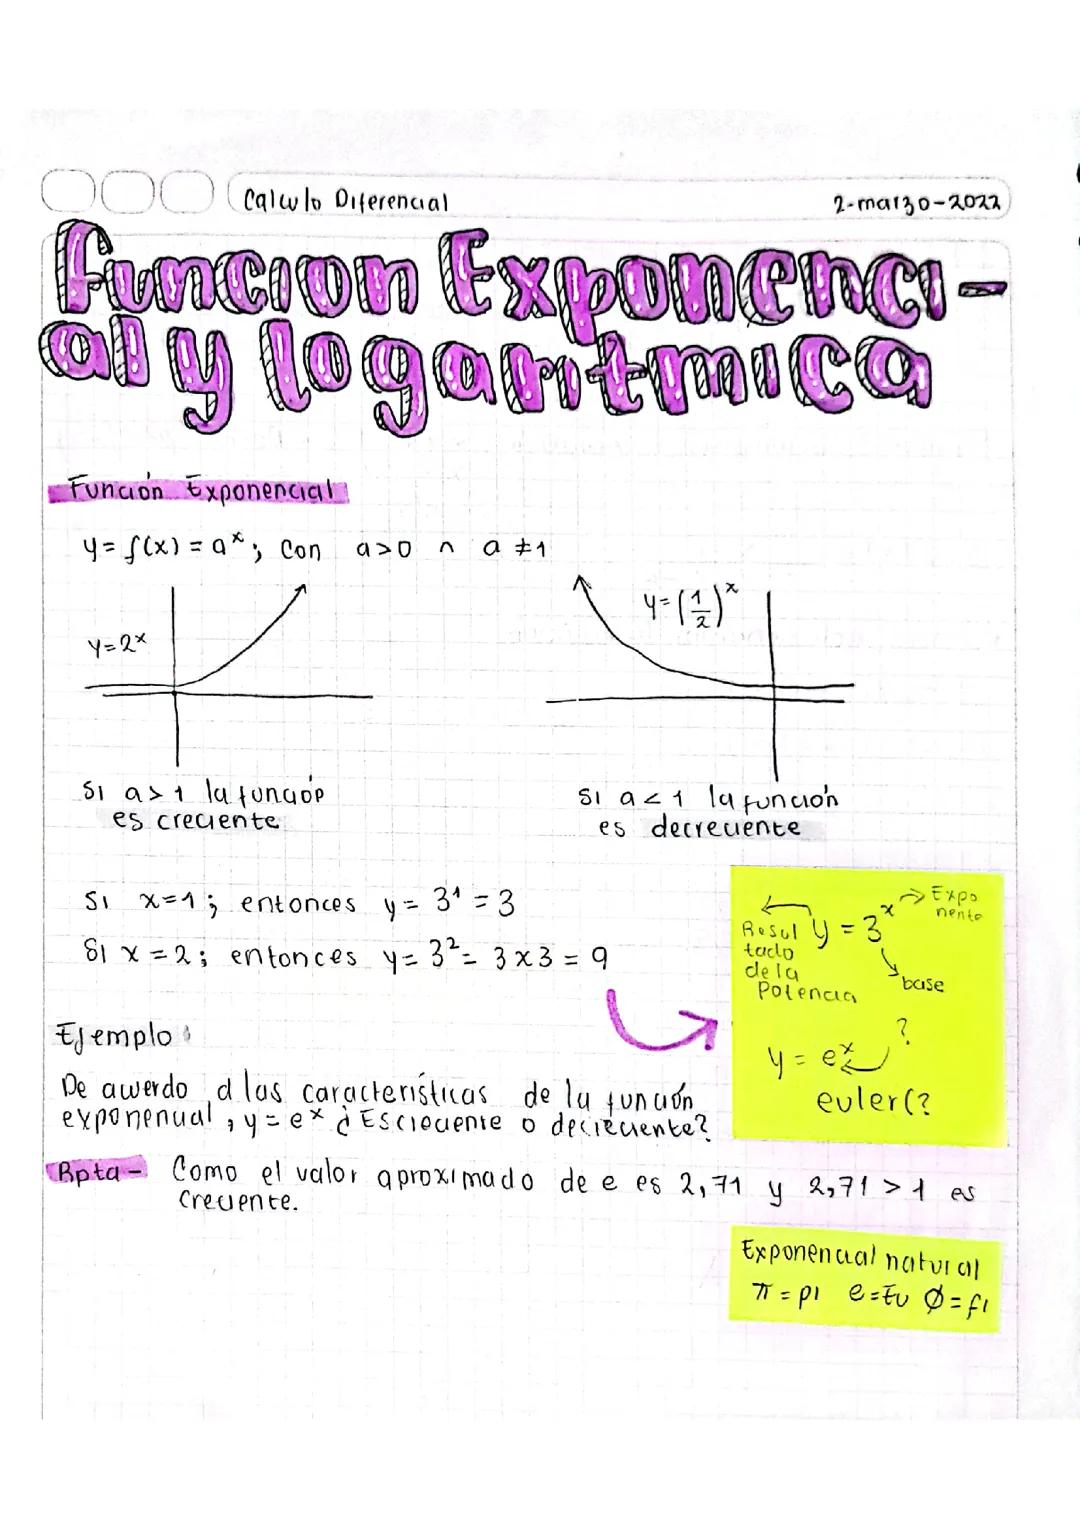 Calculo Diferencial
2-marzo-2022
Funcion Exponenci-
al y logaritmica
Función Exponencial
y = f(x) = aˣ; Con a>0 ∩ a ≠ 1
y=2ˣ
y=(1/2)ˣ
Si a>1 la función
es creciente
Si a<1 la función
es decreciente
Si x=1; entonces y = 3¹ = 3
Si x=2; entonces y= 3² = 3x3 = 9
Resul
tado
de la
Potencia
y = 3ˣ
Expo
nente
base
y = eˣ ?
euler(?
Ejemplo:
De acuerdo a las características de la función
exponencial, y=eˣ ¿Es creciente o decreciente?
Rpta- Como el valor aproximado de e es 2,71 y 2,71 > 1 es
creciente.
Exponencial natural
π=pi e=Eu Ø=fi